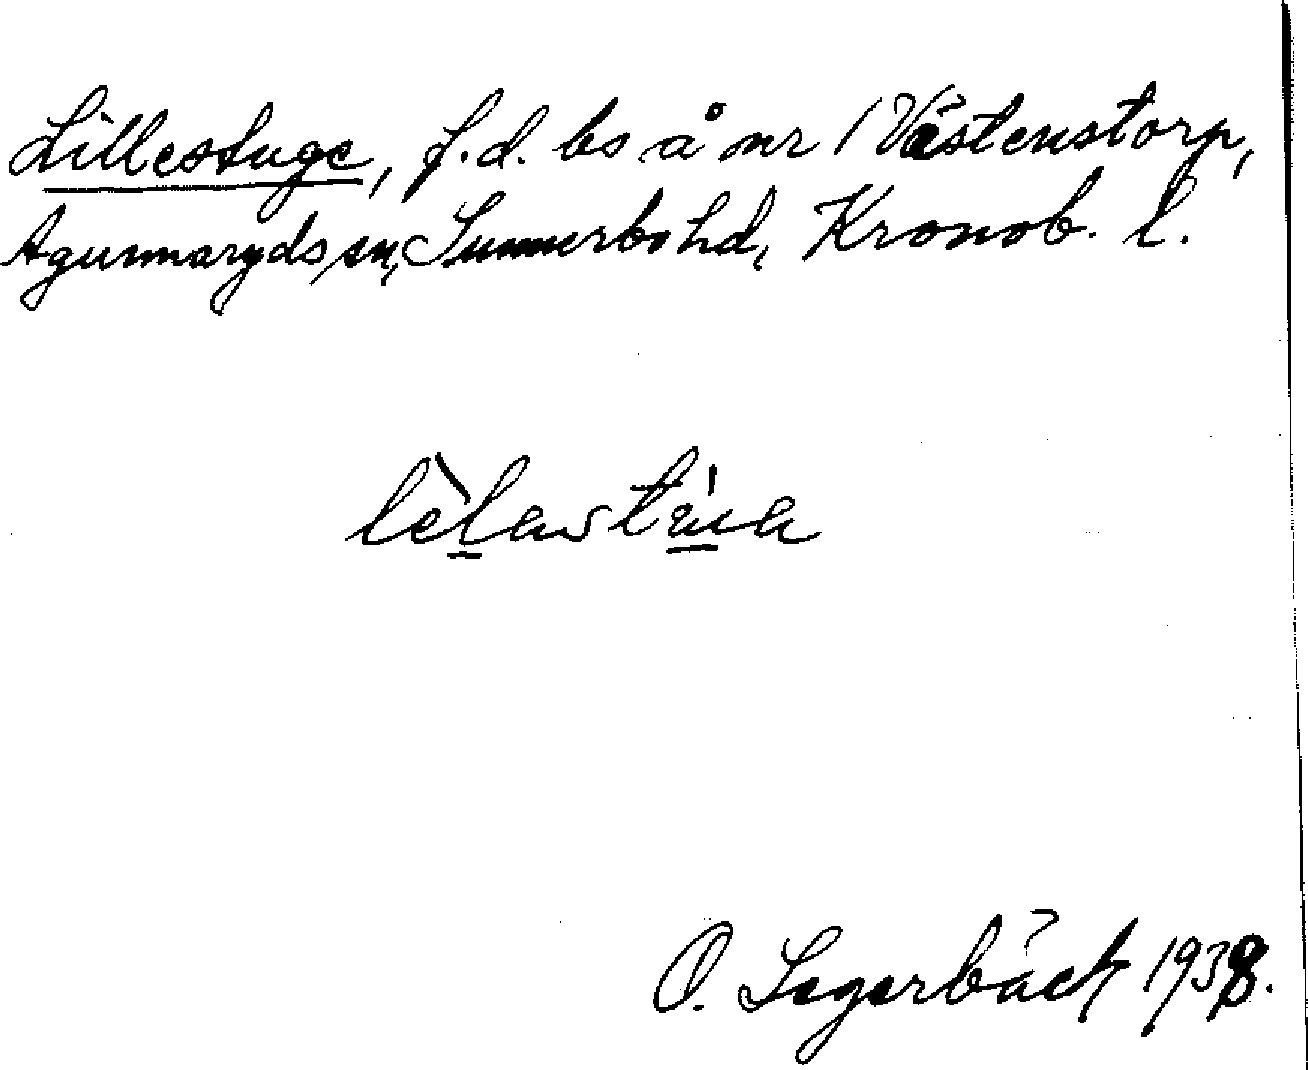 Lillestuge, f.d. bs å nr 1 Västenstorp,
Agunnaryds sn, Sunnerbo hd, Kronob. l.
O. Lagerbäck 1938.